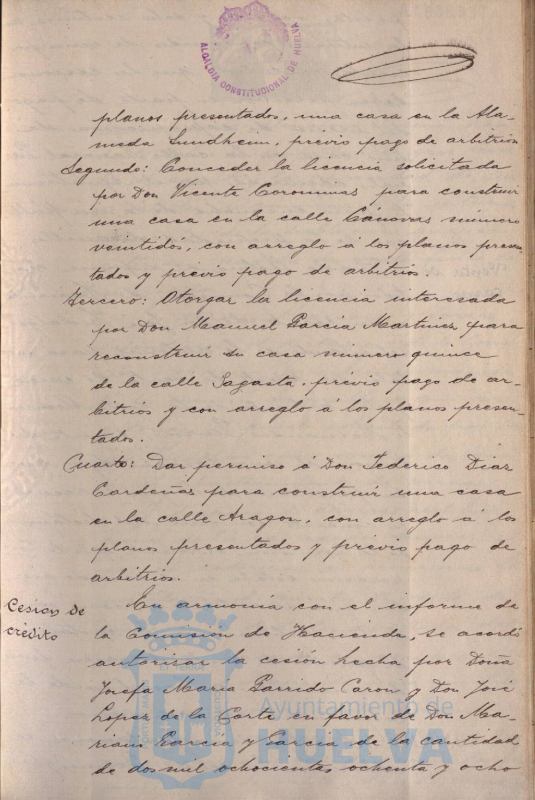 ALCALDIA CONSTITUCIONAL DE HUELVA
planos presentados, una casa en la Ala-
meda Sundheim, previo pago de arbitrios
Segundo: Conceder la licencia solicitada
por Don Vicente Corominas para construir
una casa en la calle Cánovas número
veintidós, con arreglo á los planos presen-
tados y previo pago de arbitrios
Tercero: Otorgar la licencia interesada
por Don Manuel Garcia Martinez para
reconstruir su casa número quince
de la calle Sagasta, previo pago de ar-
bitrios y con arreglo á los planos presen-
tados.
Cuarto: Dar permiso á Don Federico Diaz
Cardeñas para construir una casa
en la calle Aragon, con arreglo á los
planos presentados y previo pago de
arbitrios.
Cesion de
crédito
En armonía con el informe de
la Comisión de Hacienda, se acordó
autorizar la cesión hecha por Doña
Josefa María Garrido Caron y Don José
Lopez de la Corte en favor de Don Ma-
riano Garcia y Garcia de la cantidad
de dos mil ochocientas ochenta y ocho
Ayuntamiento de
HUELVA